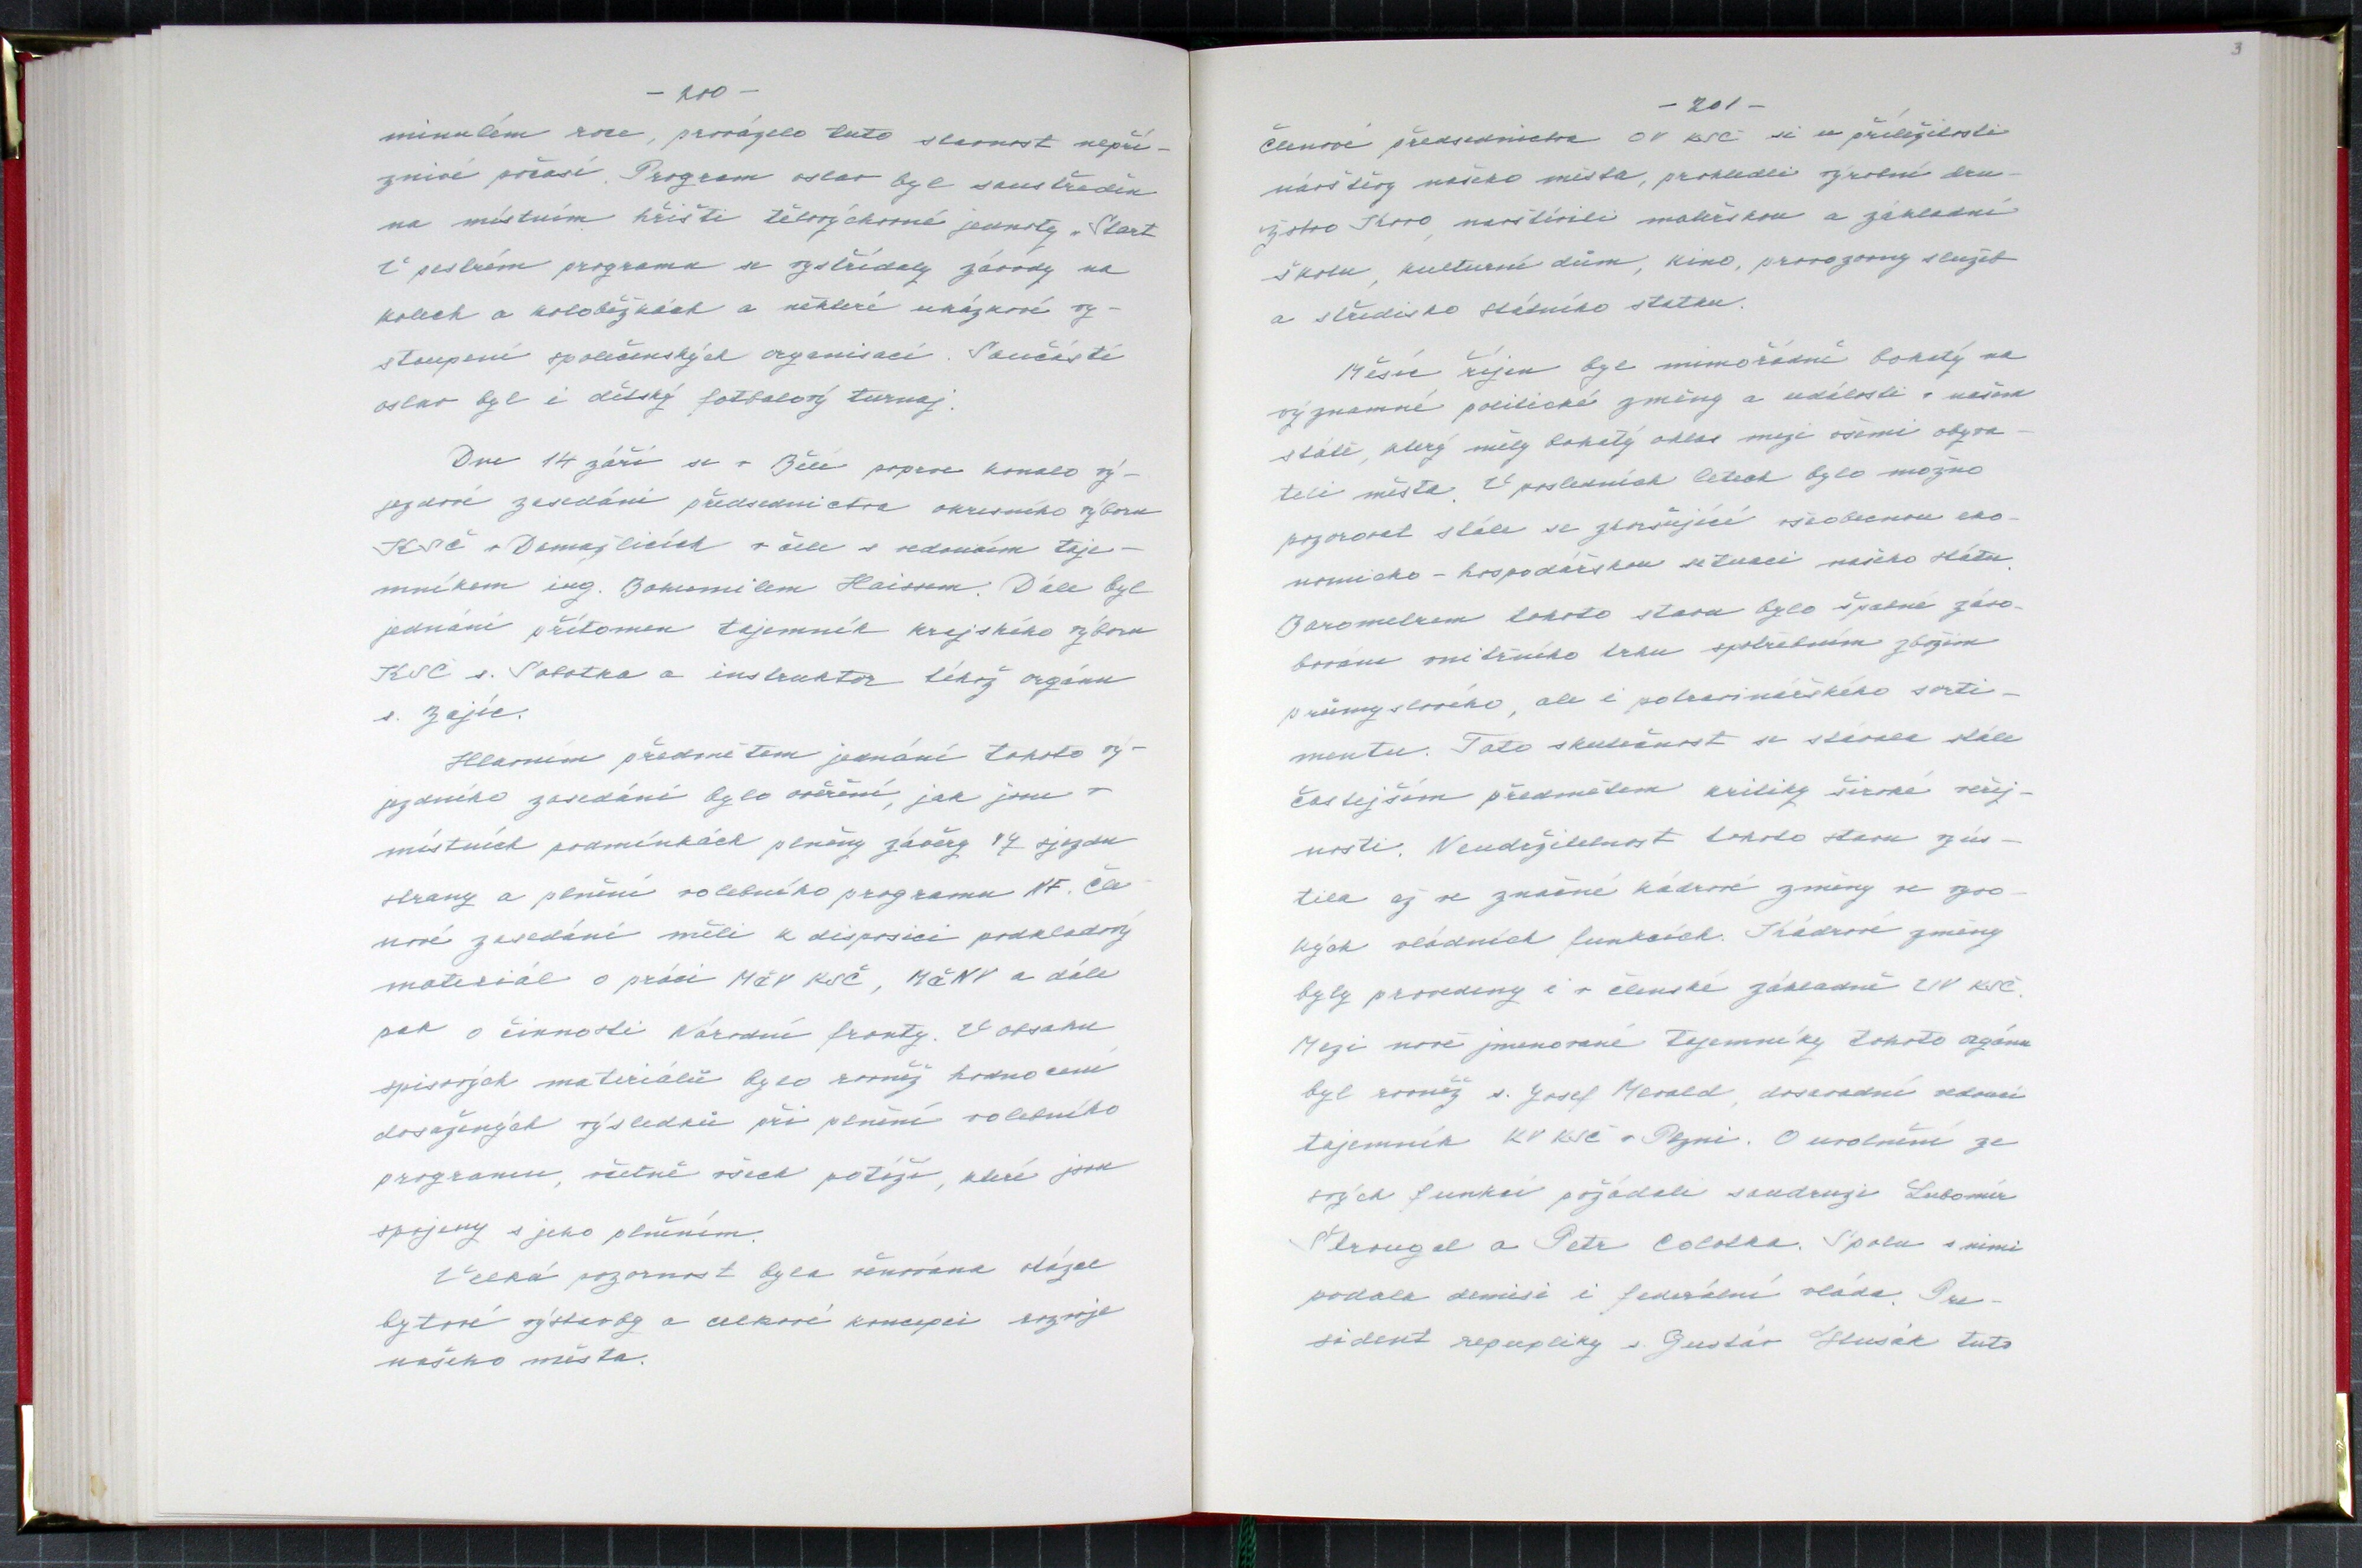 - 200 -
minulém roce, provázelo tuto slavnost nepří-
znivé počasí. Program oslav byl soustředěn
na místním hřišti tělovýchovné jednoty „Start
V pestrém programu se vystřídaly závody na
kolech a koloběžkách a některé ukázkové vy-
stoupení společenských organisací. Součástí
oslav byl i dětský fotbalový turnaj.
Dne 14 září se v Bělé poprve konalo vý-
jezdové zasedání předsednictva okresního výboru
KSČ v Domažlicích v čele s vedoucím taje-
mníkem ing. Bohumilem Haisem. Dále byl
jednání přítomen tajemník krajského výboru
KSČ s. Sobotka a instruktor téhož orgánu
s. Zajíc.
Hlavním předmětem jednání tohoto vý-
jezdního zasedání bylo ověření, jak jsou v
místních podmínkách plněny závěry 17 sjezdu
strany a plnění volebního programu NF. Čle-
nové zasedání měli k disposici podkladový
materiál o práci MěV KSČ, MěNV a dále
pak o činnosti Národní fronty. V obsahu
spisových materiálů bylo rovněž hodnocení
dosažených výsledků při plnění volebního
programu, včetně všech potíží, které jsou
spojeny s jeho plněním.
Velká pozornost byla věnována otázce
bytové výstavby a celkové koncepci rozvoje
našeho města.
3
- 201 -
Členové předsednictva OV KSČ si u příležitosti
návštěvy našeho města, prohlédli výrobní dru-
žstvo Kovo, navštívili mateřskou a základní
školu, kulturní dům, kino, provozovny služeb
a středisko státního statku.
Měsíc říjen byl mimořádně bohatý na
významné politické změny a události v našem
státě, který měly bohatý ohlas mezi všemi obyva-
teli města. V posledních letech bylo možno
pozorovat stále se zhoršující všeobecnou eko-
nomicko - hospodářskou situaci našeho státu.
Barometrem tohoto stavu bylo špatné záso-
bování vnitřního trhu spotřebním zbožím
průmyslového, ale i potravinářského sorti-
mentu. Tato skutečnost se stávala stále
častejším předmětem kritiky široké veřej-
nosti. Neudržitelnost tohoto stavu vyús-
tila až ve značné kádrové změny ve vyso-
kých vládních funkcích. Kádrové změny
byly provedeny i v členské základně ÚV KSČ.
Mezi nově jmenované tajemníky tohoto orgánu
byl rovněž s. Josef Mevald, dosavadní vedoucí
tajemník KV KSČ v Plzni. O uvolnění ze
svých funkcí požádali soudruzi Lubomír
Štrougal a Petr Colotka. Spolu s nimi
podala demisi i federální vláda. Pre-
sident repupliky s. Gustáv Husák tuto